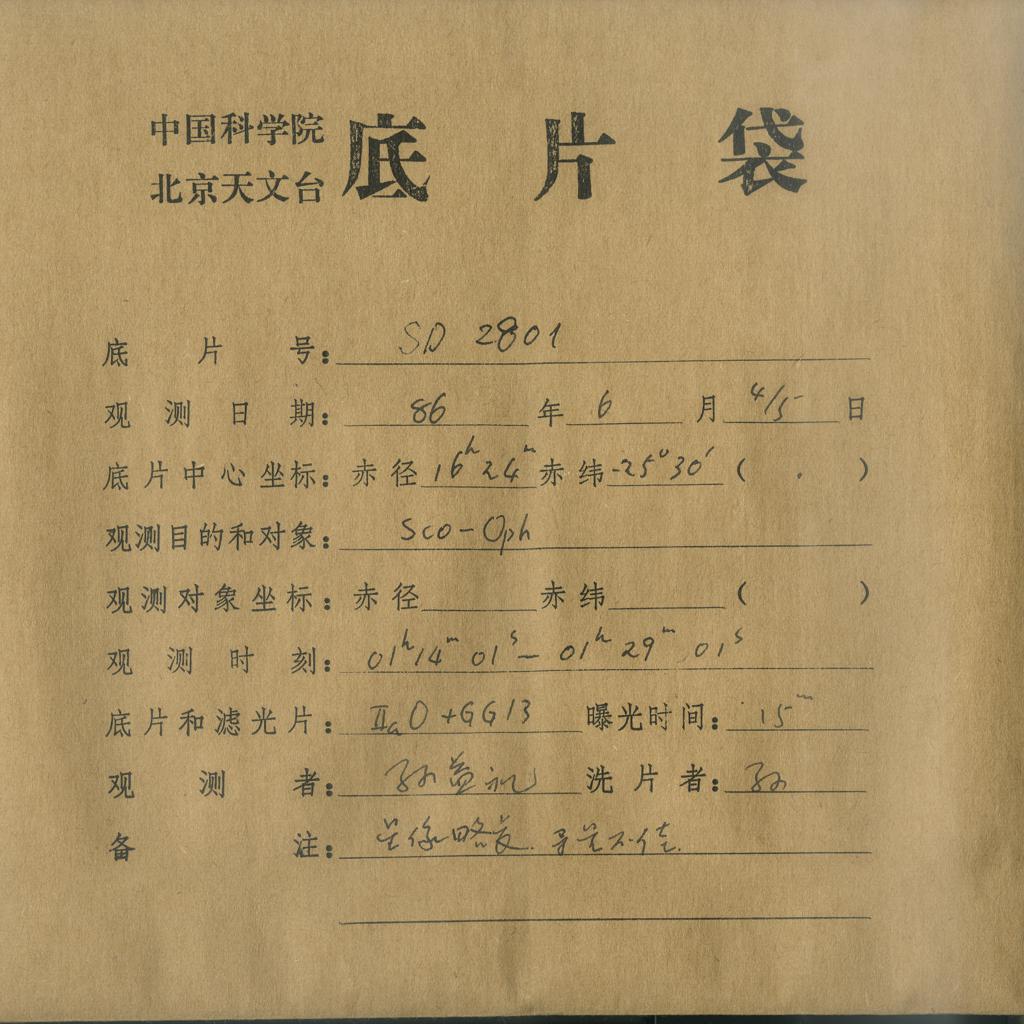 中国科学院
北京天文台
底片袋
底片号：SD 2801
观测日期：86年6月4/5日
底片中心坐标：赤径16h24m赤纬-25°30′( . )
观测目的和对象：Sco-Oph
观测对象坐标：赤径 赤纬 ( )
观测时刻：01h14m01s-01h29m01s
底片和滤光片：ⅡaO+GG13 曝光时间：15m
观测者：孙益礼 洗片者：孙
备注：星像略 导星不佳.